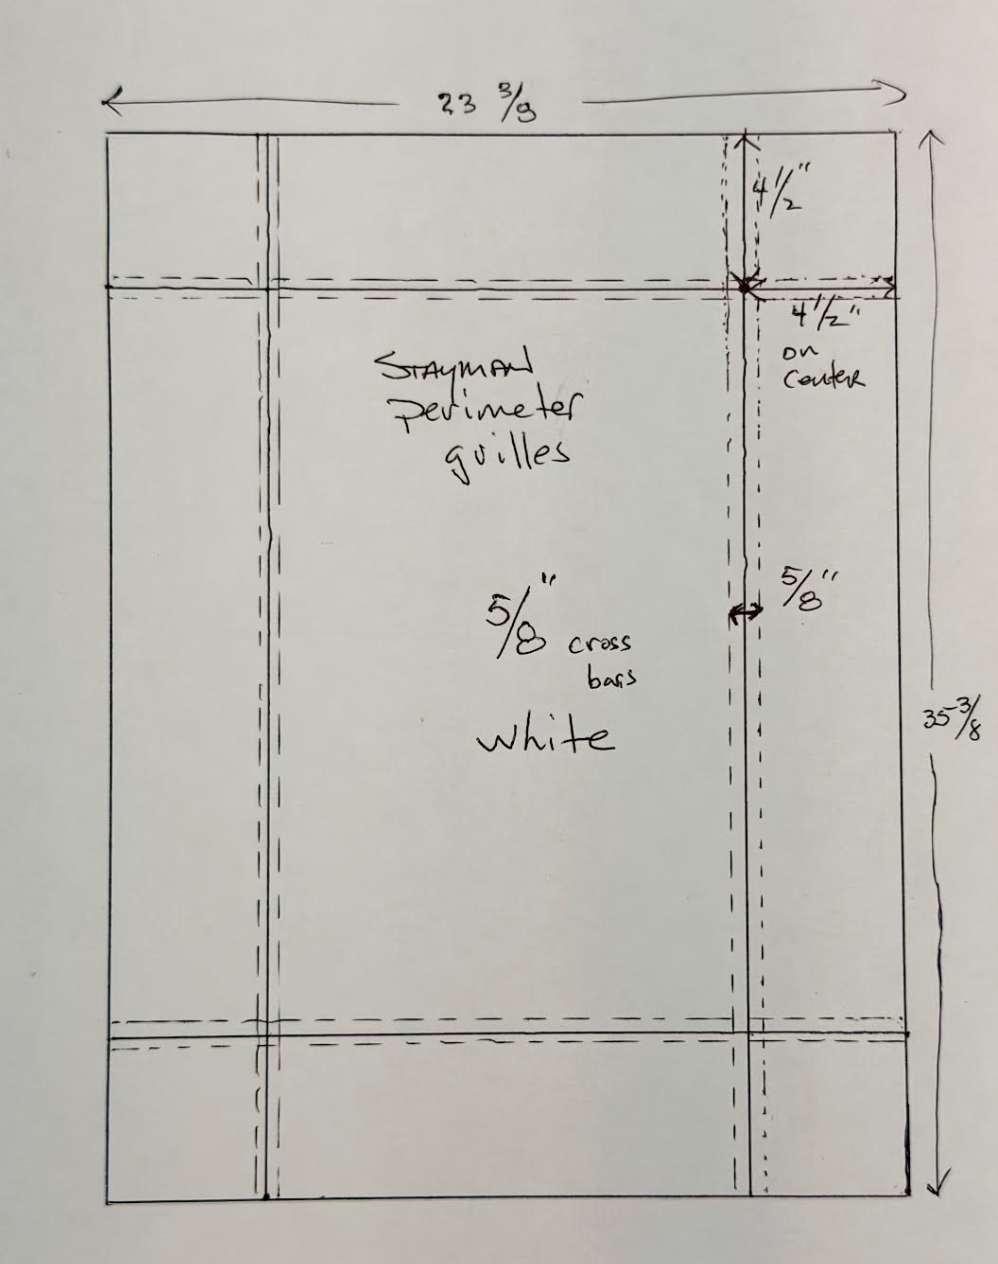 23 3/8
4 1/2"
4 1/2"
on
center
STAYMAN
perimeter
grilles
5/8"
5/8" cross
bars
35-3/8
white